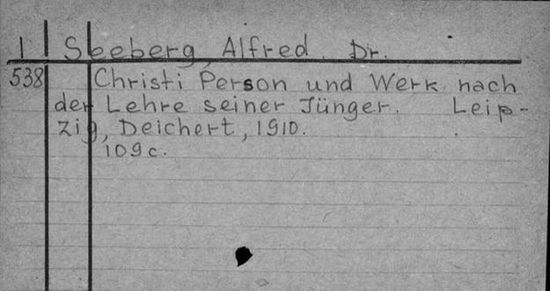 I Seeberg, Alfred. Dr.
538 Christi Person und Werk nach
der Lehre seiner Jünger. Leip-
zig, Deichert, 1910.
109c.